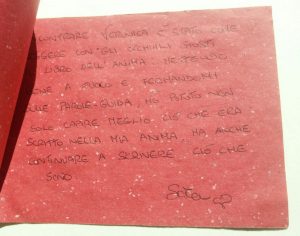 INCONTRARE VERONICA È STATO COME
LEGGERE CON GLI OCCHIALI GIUSTI
LIBRO DELL'ANIMA. METTENDO
A FUOCO E FERMANDOMI
SULLE PAROLE-GUIDA, HO POTUTO NON
SOLO CAPIRE MEGLIO CIÒ CHE ERA
SCRITTO NELLA MIA ANIMA, MA ANCHE
CONTINUARE A SCRIVERE CIÒ CHE
SONO.